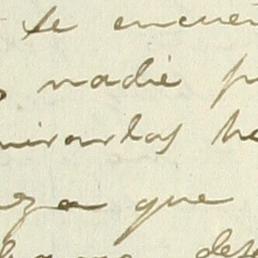 te encuen
nadie p
mirarlas he
za que
desc